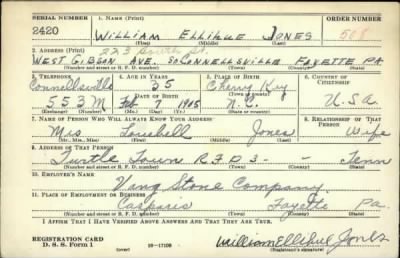 SERIAL NUMBER 1. NAME (Print) ORDER NUMBER
2420 WILLIAM ELLIHUE JONES 508
(First) (Middle) (Last)
2. ADDRESS (Print) 223 South St.
WEST GIBSON AVE. SO CONNELLSVILLE FAYETTE PA
(Number and street or R. F. D. number) (Town) (County) (State)
3. TELEPHONE 4. AGE IN YEARS 5. PLACE OF BIRTH 6. COUNTRY OF CITIZENSHIP
Connellsville 35 Cherry
DATE OF BIRTH (Town or county)
553 M Feb 7 1905 N.C. U.S.A
(Exchange) (Number) (Mo.) (Day) (Yr.) (State or country)
7. NAME OF PERSON WHO WILL ALWAYS KNOW YOUR ADDRESS 8. RELATIONSHIP OF THAT PERSON
Mrs Jones Wife
(Mr., Mrs., Miss) (First) (Middle) (Last)
9. ADDRESS OF THAT PERSON
Turtle Town R.F.D 3 - - Tenn
(Number and street or R. F. D. number) (Town) (County) (State)
10. EMPLOYER'S NAME
Vang Stone Company
11. PLACE OF EMPLOYMENT OR BUSINESS
Casparis Fayette Pa.
(Number and street or R. F. D. number) (Town) (County) (State)
I AFFIRM THAT I HAVE VERIFIED ABOVE ANSWERS AND THAT THEY ARE TRUE.
REGISTRATION CARD
D. S. S. Form 1 (over) 16—17105 William Ellihue Jones